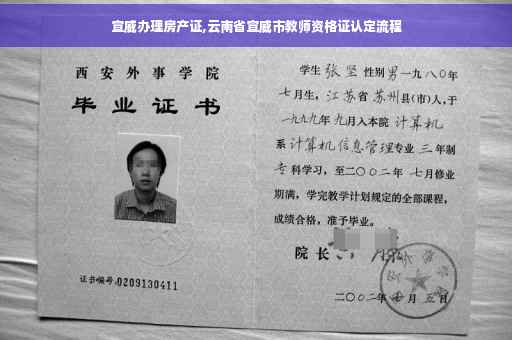 宣威办理房产证,云南省宣威市教师资格证认定流程
西安外事学院
毕业证书
证书编号:0209130411
学生 张坚 性别 男 一九八〇年
七月生, 江苏省 苏州县(市)人,于
一九九九年 九月入本院 计算机
系 计算机信息管理专业 三 年制
专科学习, 至二〇〇二年 七月修业
期满, 学完教学计划规定的全部课程,
成绩合格, 准予毕业。
院长
二〇〇二年 月 五日